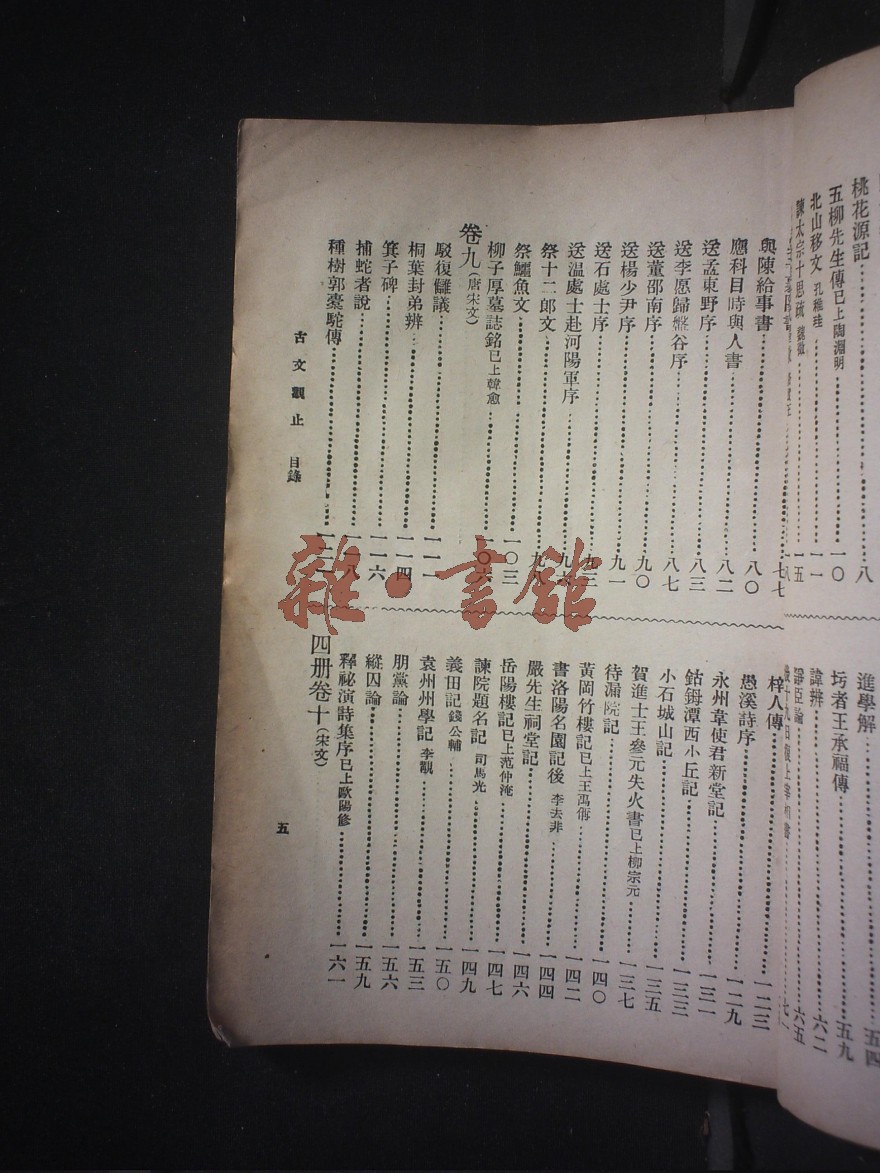 桃花源記……八
五柳先生傳已上陶淵明……一〇
北山移文 孔稚珪……一一
諫太宗十思疏 魏徵……一五
進學解……五四
圬者王承福傳……五九
諱辨……六二
爭臣論……六五
與陳給事書……七七
應科目時與人書……八〇
送孟東野序……八二
送李愿歸盤谷序……八三
送董邵南序……八七
送楊少尹序……九〇
送石處士序……九一
送温處士赴河陽軍序……九三
祭十二郎文
祭鱷魚文……一〇三
柳子厚墓誌銘已上韓愈……一〇六
卷九(唐宋文)
駁復讎議……一一一
桐葉封弟辨……一一四
箕子碑……一一六
捕蛇者說……一一八
種樹郭橐駝傳……一二一
梓人傳……一二三
愚溪詩序……一二九
永州韋使君新堂記……一三一
鈷鉧潭西小丘記……一三三
小石城山記……一三五
賀進士王參元失火書已上柳宗元……一三七
待漏院記……一四〇
黃岡竹樓記已上王禹偁……一四二
書洛陽名園記後 李去非……一四四
嚴先生祠堂記……一四六
岳陽樓記已上范仲淹……一四七
諫院題名記 司馬光……一四九
義田記 錢公輔……一五〇
袁州州學記 李覯……一五三
朋黨論……一五六
縱囚論……一五九
釋祕演詩集序已上歐陽修……一六一
四册卷十(宋文)
古文觀止 目錄
五
雜·書館